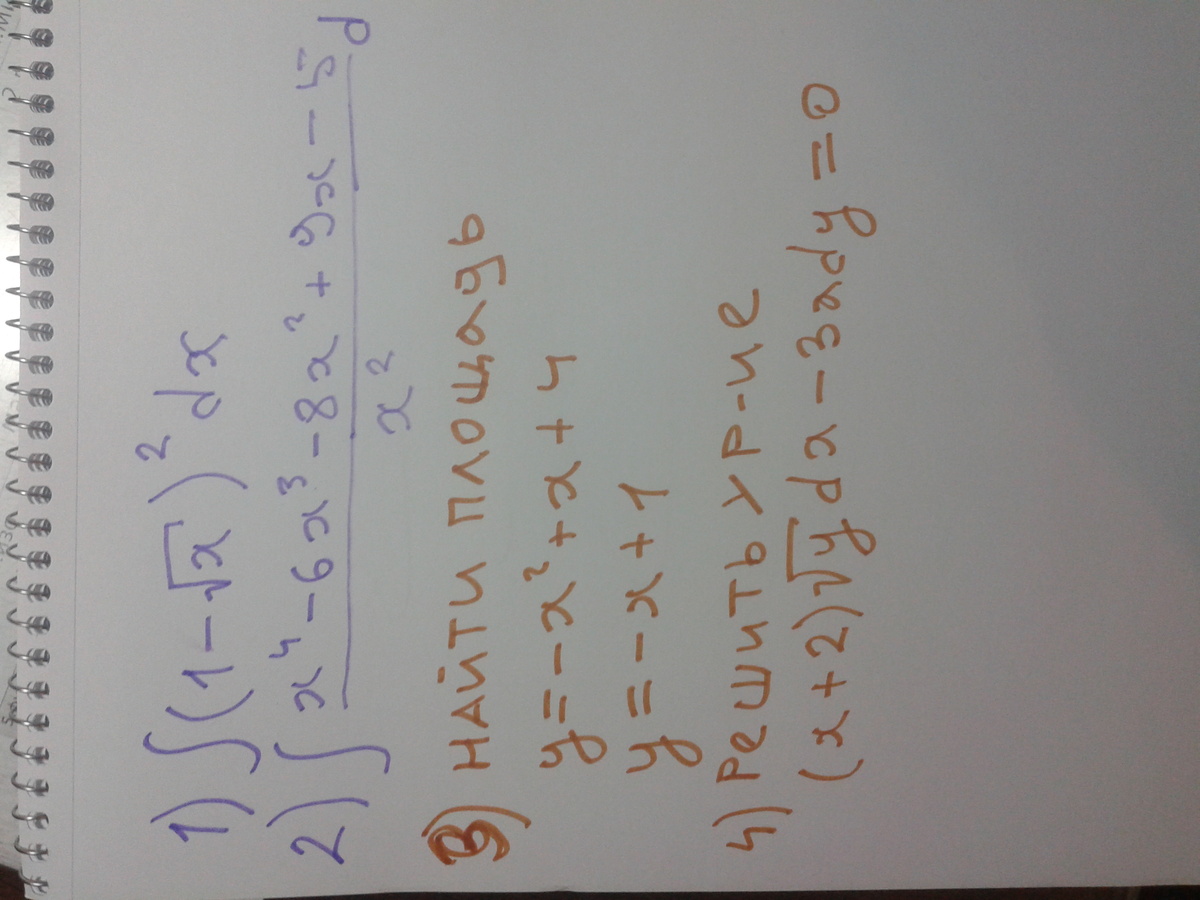 1) ∫(1-√x)² dx
2) ∫ (x⁴-6x³-8x²+9x-5)/x² d
3) НАЙТИ ПЛОЩАДЬ
y=-x²+x+4
y=-x+1
4) Решить ур-ие
(x+2)√y dx-3xdy=0